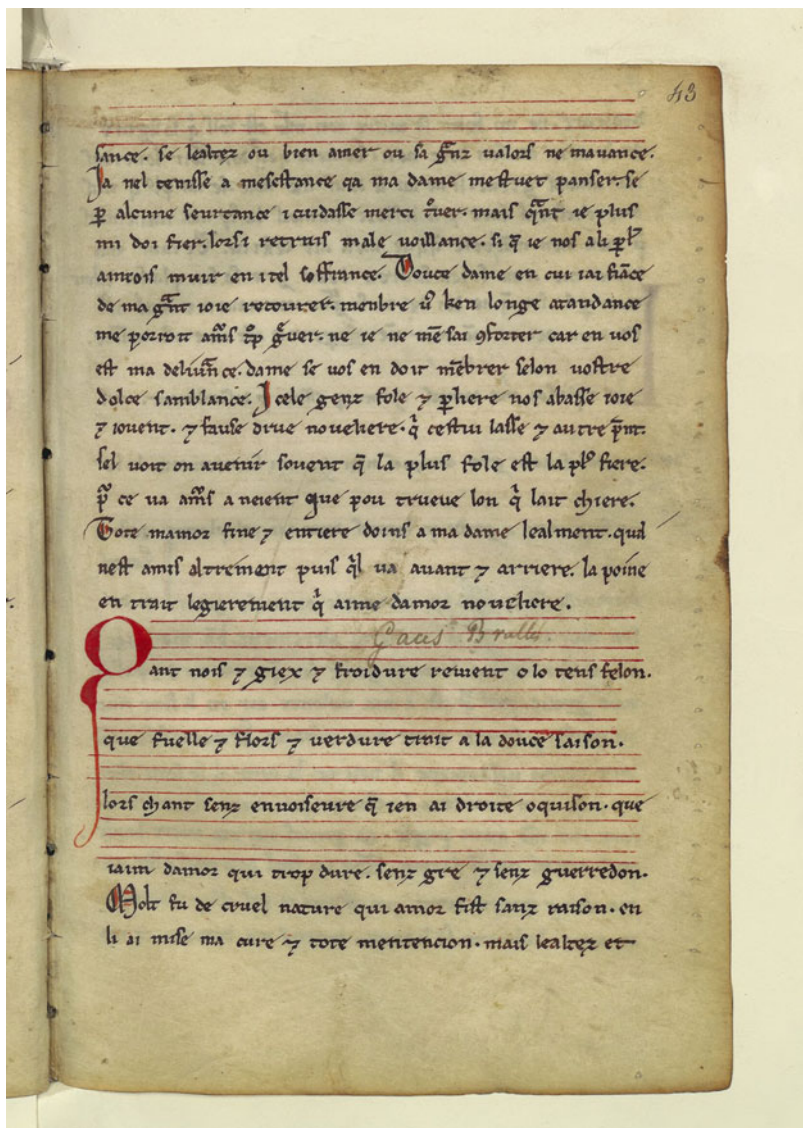 43
sance. se lealtez ou bien amer ou sa gnz valors ne mauance.
Ja nel tenisse a mescstance qa ma dame mestuet panser. se
p alcune seurtance i cuidasse merci tuer. mais qnt ie plus
mi doi fier. lorsi retruis male voillance. si q ie nos
aincois muir en itel soffrance. Douce dame en cui iai fiace
de ma gnt ioie recourer. menbre v ken longe atandance
me porroit ams tp guer. ne ie ne me sai 9forter car en vos
est ma deliunce. dame se vos en doit mebrer selon vostre
dolce samblance. Icele genz fole ⁊ phere nos abasse ioie
⁊ iouent. ⁊ fause drue noueliere. q cestui lasse ⁊ autre pnt.
sel voit on auenir souent q la plus fole est la pl fiere.
p ce va ams a neient que pou trueue lon q lait chiere.
Tote mamor fine ⁊ entiere doins a ma dame lealment. qual
nest amis altrement puis ql va auant ⁊ arriere. la poine
en trait legierement q aime damor noueliere.
Gaces Brulles.
Qant nois ⁊ giex ⁊ froidure reuient o lo tens felon.
que fuelle ⁊ flors ⁊ verdure trait a la douce saison.
lors chant senz enuoiseure q ien ai droite oquison. que
iaim damor qui trop dure. senz gre ⁊ senz guerredon.
Molt fu de cruel nature qui amor fist sanz raison. en
li ai mise ma cure ⁊ tote mentencion. mais lealtez et